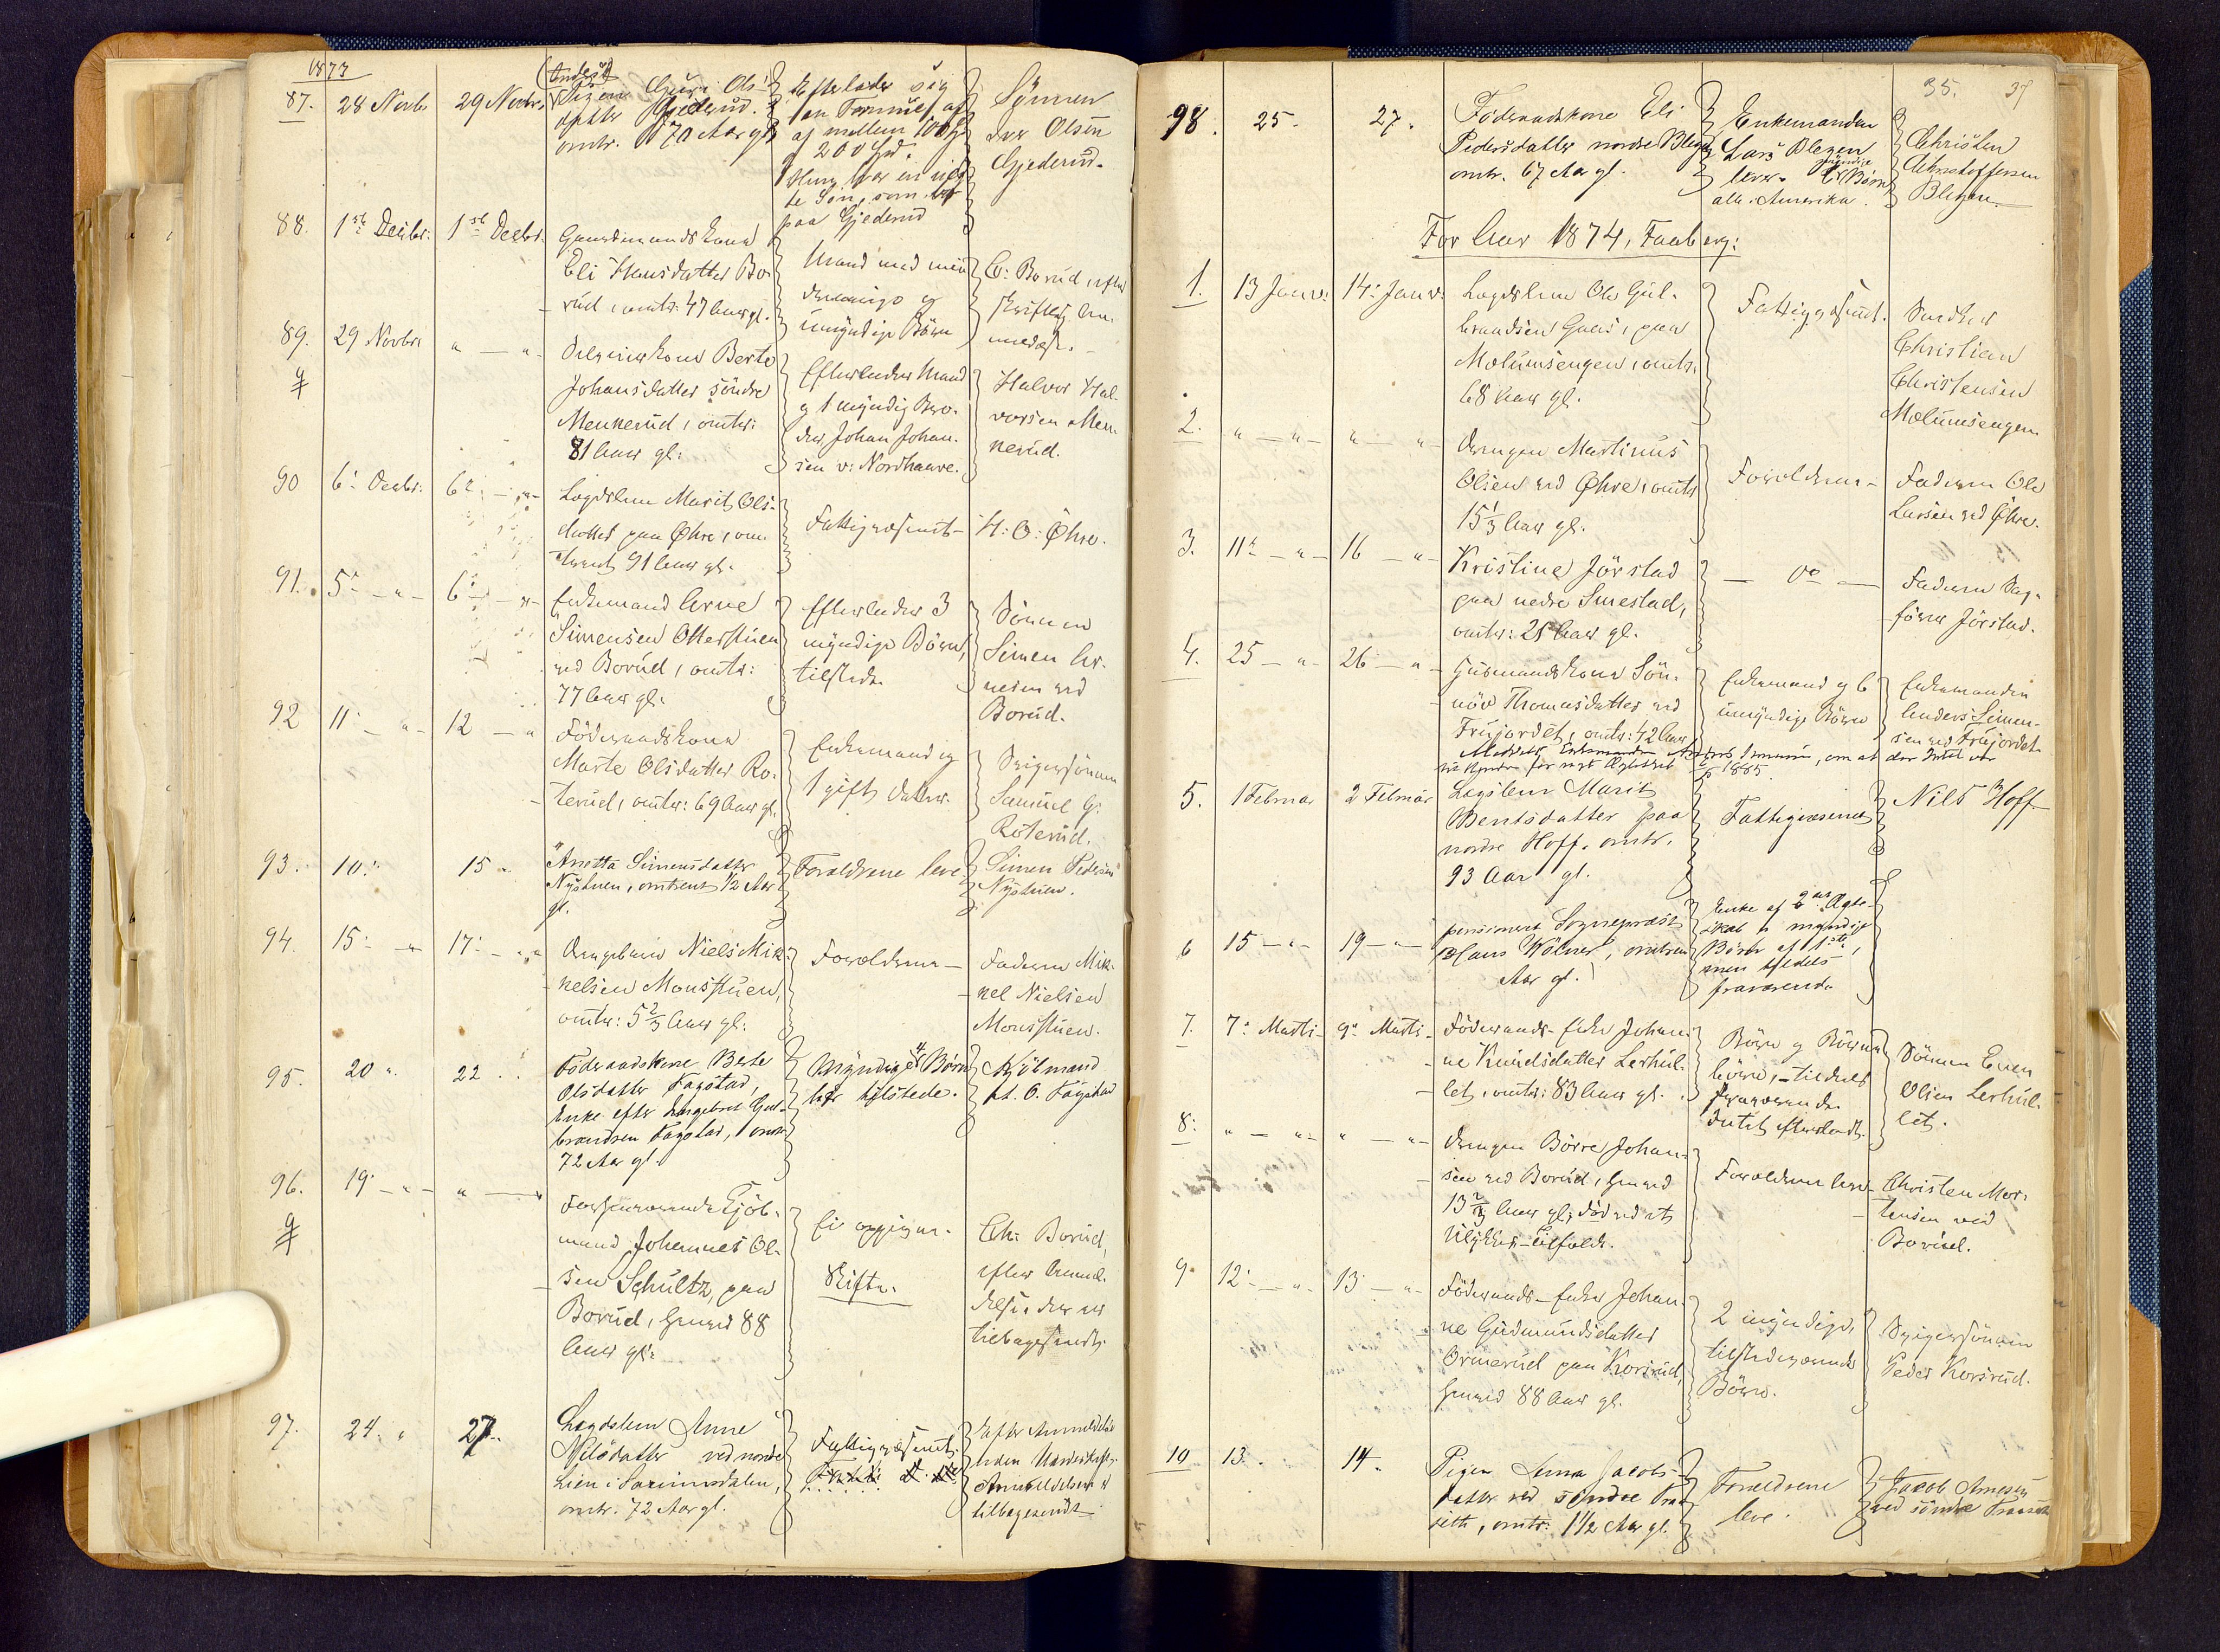 1873
87. 28 Novb. 29 Novbr. Pigen Guri Ols-
datter Gjederud.
omtr. 70 Aar gl.
Efterlader sig
en Formue af
af mellem 100 og
200 Spd.
Hun har en
Søn, som bor
paa Gjederud
Sønnen
Olsen
Gjederud.
88. 1ste Decbr. 1ste Decbr. Gaardmandskone
Eli Hansdatter Bo-
rud, omtr. 47 Aar gl.
Mand med myn-
dige og
umyndige Børn
C: Borud efter
skriftlig An-
meldelse.
89. 29 Novbr. " — " Selveierkone Berte
Johansdatter søndre
Menkerud, omtr:
81 Aar gl:
Efterlader Mand
og 1 myndig Bro-
der, Johan Johan-
sen v: Nordhaave.
Halvor Hal-
vorsen Men-
kerud.
90 6: Decbr: 6: — " — Lægdslem Marit Ols-
datter paa Øhre, om-
trent 91 Aar gl.
Fattigvæsenet —
H: O: Øhre.
91. 5: — " — 6: — " — Enkemand Arne
Simensen Otterstuen
ved Borud, omtr:
77 Aar gl.
Efterlader 3
myndige Børn,
tilstede.
Sønnen
Simen Ar-
nesen ved
Borud.
92 11: — " — 12 — " Føderaadskone
Marte Olsdatter Ro-
terud, omtr: 69 Aar gl.
Enkemand og
1 gift Datter.
Svigersønnen
Samuel G:
Roterud.
93. 10: 15 " Anetta Simensdatter
Nystuen, omtrent 1/2 Aar
gl.
Forældrene leve.
Simen Pedersen
Nystuen.
94. 15: — " 17: — " Drengebarn Niels Mik-
kelsen Monsstuen,
omtr: 5 2/3 Aar gl:
Forældrene —
Faderen Mik-
kel Nielsen
Monsstuen.
95. 20 " 22 . . Føderaadskone Berte
Olsdatter Fagstad,
Enke efter Engebret Gul-
brandsen Fagstad, omtr.
72 Aar gl.
Myndige 4 Børn
tilstede.
Kjøbmand
O. Fagstad
96. 19 — " — " — " Forhenværende Kjøb-
mand Johannes Ol-
sen Schultz, paa
Borud, henved 88
Aar gl:
Ei opgivne.
Skifte.
Ch: Borud,
efter Anmel-
delse, der er
tilbagesendt.
97. 24. " 27. Lægdslem Anne
Nilsdatter ved nordre
Lien i Saxumsdalen,
omtr. 72 Aar gl.
Fattigvæsenet.
Efter Anmeldelse
Anmeldelsen er
tilbagesendt
35. 37
98. 25. 27. Føderaadskone Eli
Pedersdatter nordre Blegen
omtr. 67 Aar gl.
Enkemanden
Lars Blegen
lever. 6 myndige Børn
alle i Amerika.
Christen
Christoffersen
Blegen.
For Aar 1874, Faaberg:
1. 13 Janr: 14: Janr: Lægdslem Ole Gul-
brandsen Gaas, paa
Molumsengen, omtr.
68 Aar gl.
Fattigvæsenet.
Snedker
Christian
Christensen
Molumsengen.
2. " — " — " — " — Drengen Martinus
Olsen ved Øhre, omtr
15 1/3 Aar gl.
Forældrene —
Faderen Ole
Larsen ved Øhre.
3. 11: — " — 16 — " — Kristine Jørstad
paa nedre Smestad,
omtr: 21 Aar gl.
— do —
Faderen Sag-
fører Jørstad.
4. 25 — " — 26 — " — Husmandskone Søn-
nøv Thomasdatter ved
Frujordet, omtr: 42 Aar
Enkemand og 6
umyndige Børn
Enkemanden
Anders Simen-
sen ved Frujordet.
Enkemanden Anders Simensen, om at der Intet var
for nyt Ægteskab 1885.
5. 1 Februar 2 Februar Lægslem Marit
Bentsdatter paa
nordre Hoff. omtr.
93 Aar gl.
Fattigvæsenet
Nils Hoff
6 15 — " — 19 — " — pensioneret Sognepræst
Claus Wölner, omtrent
Aar gl.
Enke af 2det Ægte-
skab og myndige
Børn af 1ste,
men tildels
fraværende
7. 7: Marti — 9: Marti — Føderaads-Enke Johan-
ne Knudsdatter Lerhul-
let, omtr: 83 Aar gl.
Børn og Børne-
børn, — tildels
fraværende.
Intet efterladt.
Sønnen Even
Olsen Lerhul-
let.
8: " — " — " — " — Drengen Børre Johan-
sen ved Borud, henved
13 2/3 Aar gl; død ved et
Ulykkes-tilfælde.
Forældrene leve —
Christen Mor-
tensen ved
Borud.
9. 12: — " — 13 — " — Føderaads-Enke Johan-
ne Gudmundsdatter
Ormerud paa Korsrud,
henved 88 Aar gl.
2 myndige,
tilstedeværende
Børn.
Svigersønnen
Peder Korsrud.
10 13. . 14. Pigen Anna Jacobs-
datter ved søndre Fraa-
seth, omtr: 1 1/2 Aar gl.
Forældrene
leve.
Jacob Arnesen
ved søndre Fraaseth